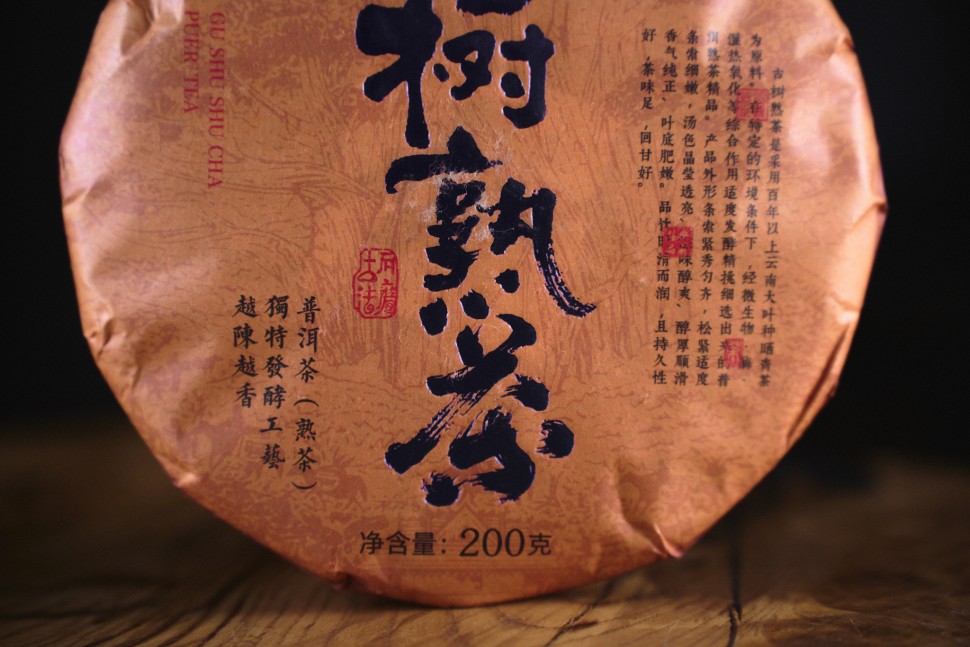 古树熟茶是采用百年以上云南大叶种晒青茶
为原料。在特定的环境条件下,经微生物、
湿热氧化等综合作用适度发酵精挑细选出来的普
洱熟茶精品。产品外形条索紧秀匀齐,松紧适度
条索细嫩,汤色晶莹透亮、味醇爽、醇厚顺滑
香气纯正、叶底肥嫩。品饮时滑而润,且持久性
好,茶味足,回甘好。
树熟茶
普洱茶(熟茶)
獨特發酵工藝
越陳越香
GU SHU SHU CHA
PUER TEA
净含量:200克